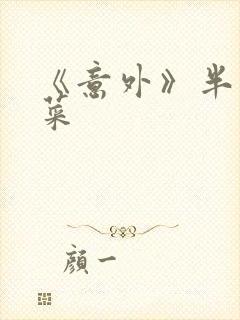 《意外》半
菜
顔一